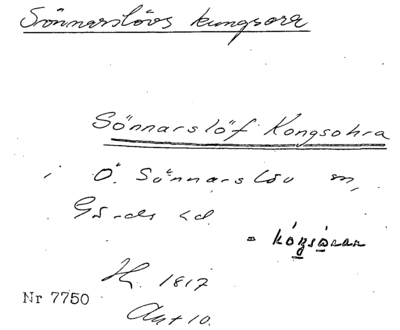 Sönnarslövs kungsora
Sönnarslöf Kongsohra
i Ö. Sönnarslöv sn,
Gärds hd.
= kóngsòran
H. 1817
Nr 7750
Akt 10.